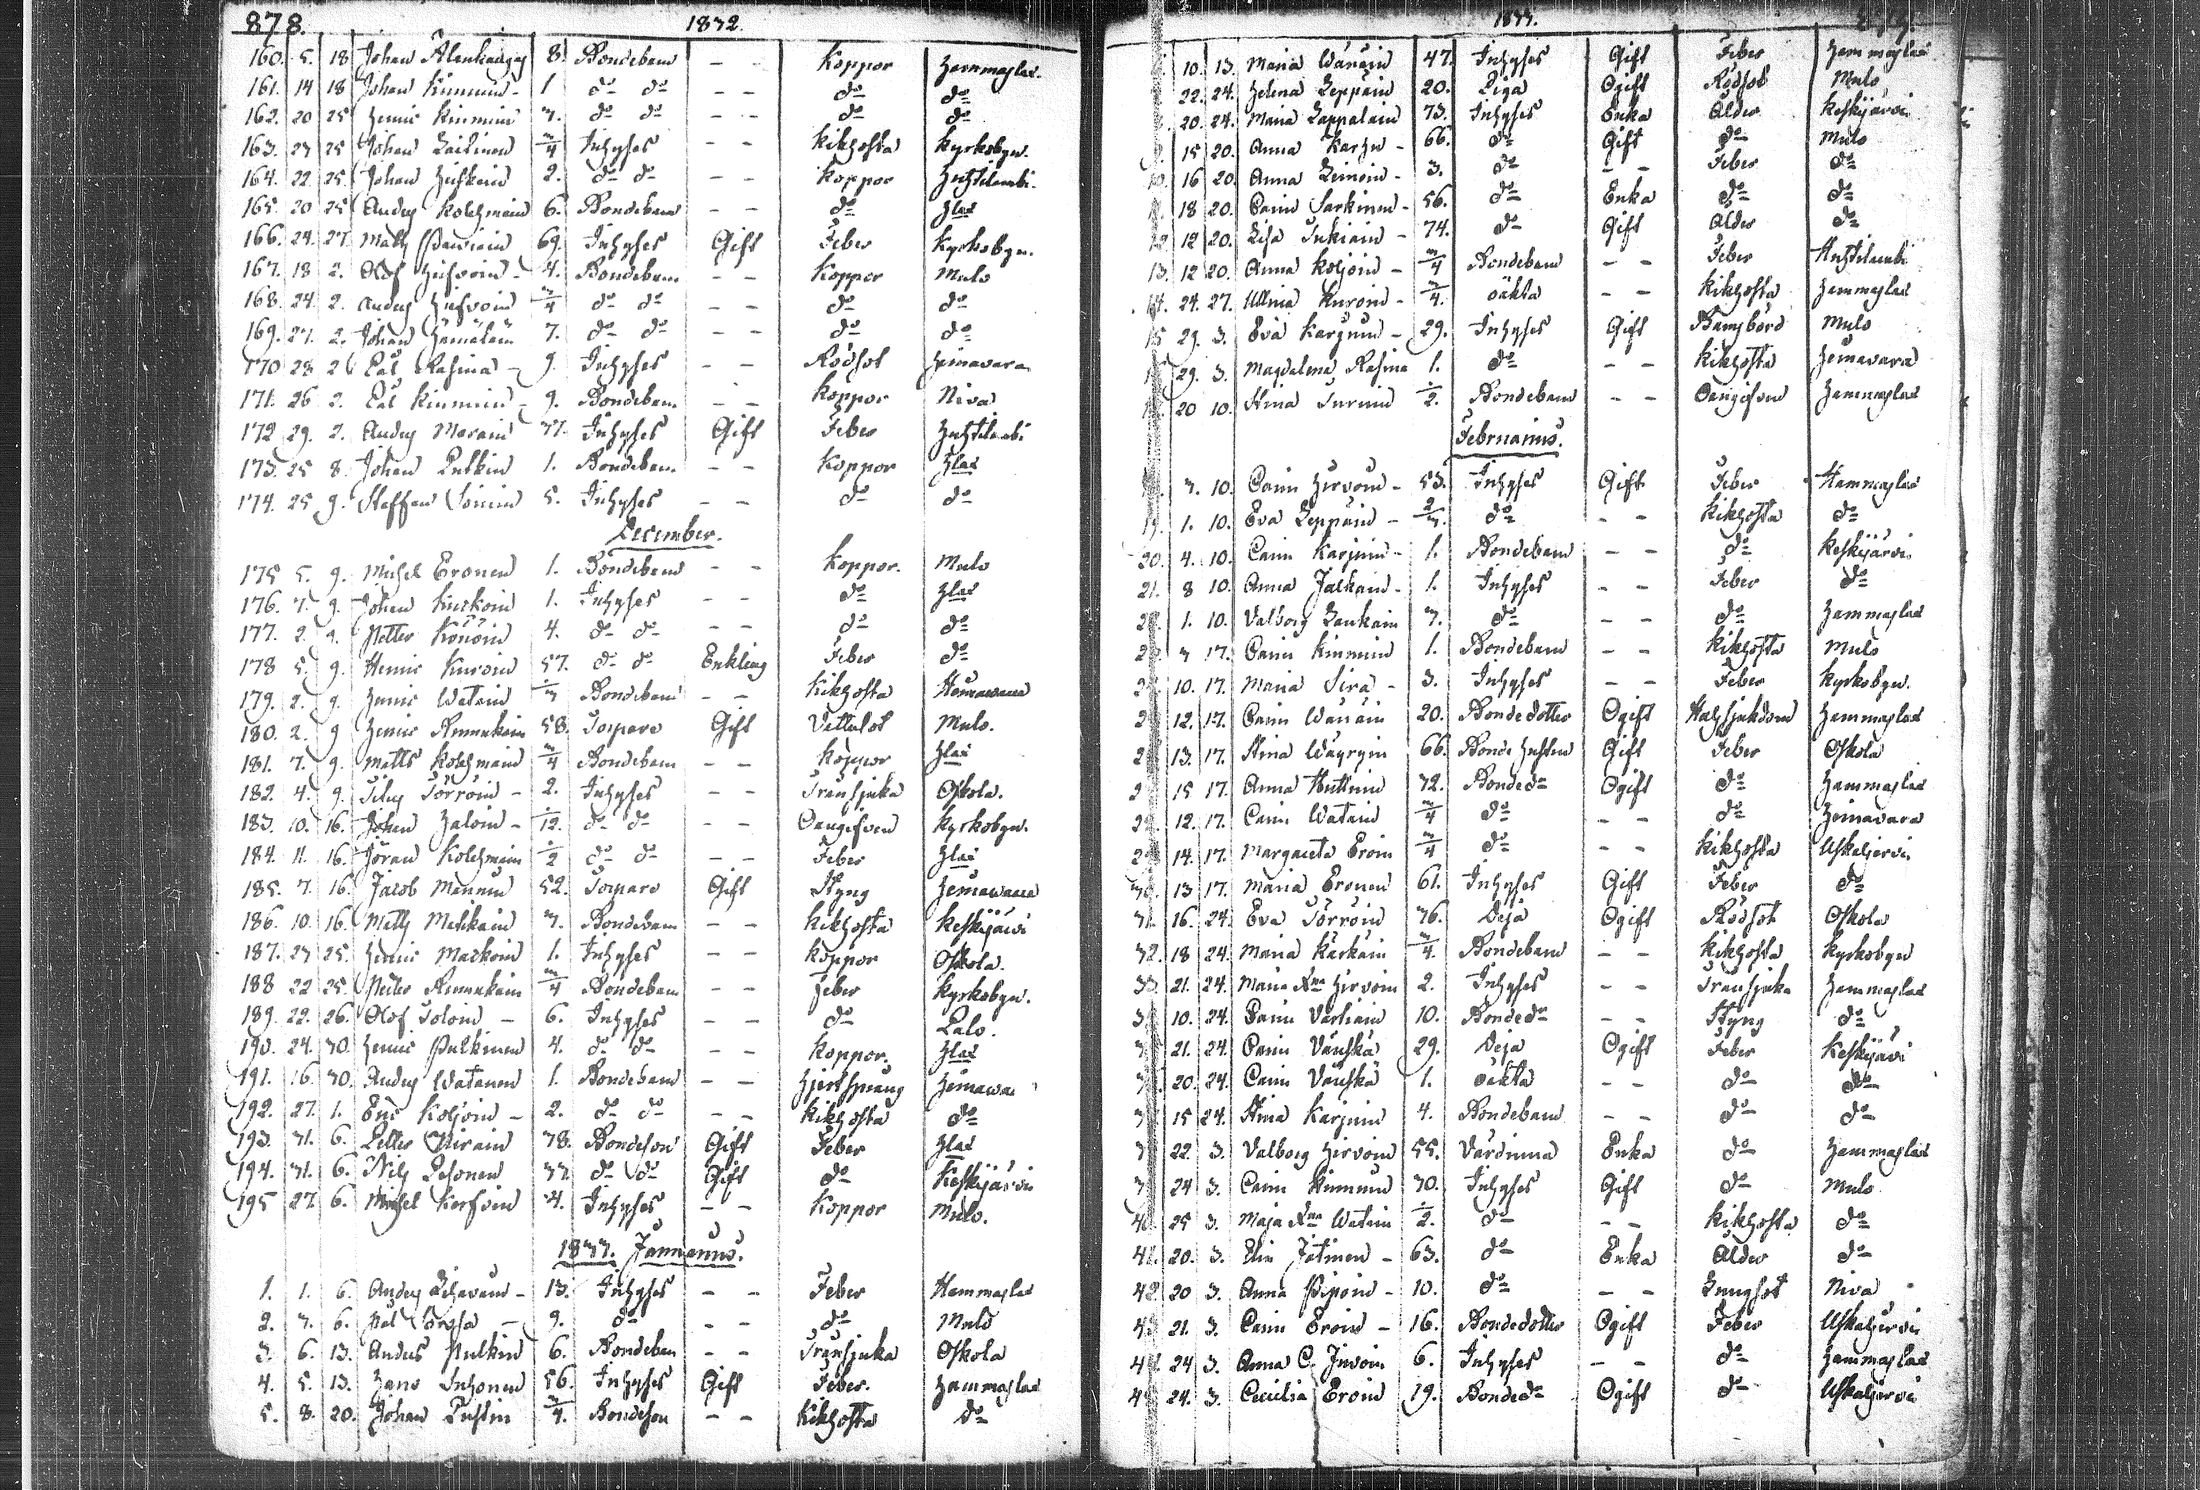 878. 1832.
160. 5. 18 Johan 8. Bondebarn - - Koppor Hammaslax.
161. 14 18 Johan Kinnunen - 1 do do - - do do
162. 20 25 Henric Kinnunen 3. do do - - do do
163. 23 25 Johan 3/4 Inhyses - - Kikhosta Kyrkobyn.
164. 22 25. Johan 2. do do - - Koppor Huhtilambi.
165. 20 25 Anders Kolehmain 6. Bondebarn - - do Hlax
166. 24. 27. Matts 69. Inhyses Gift Feber Kyrkobyn.
167. 18 2. Olof Hirvoin - 4. Bondebarn - - Koppor Mulo
168. 24. 2. Anders Hirvoin 3/4 do do - - do do
169. 27. 2. Johan Hämäläin 7. do do - - do do
170 28 2 Pål Rasina - 9. Inhyses - - Rödsot Heinavara
171. 26 2. Pål Kinnunen - 9. Bondebarn - - Koppor Niva
172 29. 2. Anders 37. Inhyses Gift Feber Huhtilambi
173. 25 8. Johan 1. Bondebarn - - Koppor Hlax
174. 25 9. Staffan 5. Inhyses - - do do
December.
175 5. 9. Michel Eronen 1. Bondebarn - - Koppor. Mulo
176. 7. 9. Johan 1. Inhyses - - do Hlax
177. 2. 9. Petter Könöin 4. do do - - do do
178 5. 9. Henric Kuroin 57. do do Enkling Feber do
179. 2. 9. Henric Watain Bondebarn - - Kikhosta Heinavara
180. 2. 9 Henric Ronnakain 58. Torpare Gift Vattusot Mulo.
181. 7. 9. Matts Kolehmain 3/4 Bondebarn - - Koppor Hlax
182. 4. 9. Törröin - 2. Inhyses - - Transjuka Oskola.
183. 10. 16. Johan Haloin - do do - - Oangifven Kyrkobyn.
184. 11. 16. Jöran Kolehmain 1/2 do do - - Feber Hlax
185. 7. 16. Jacob Mannin 52. Torpare Gift Styng Heinavara
186. 10 16. Matts 3. Bondebarn - - Kikhosta Keskijärvi
187. 23 25. Henric 1. Inhyses - - Koppor Oskola.
188 22 25. Petter Ronnakain 3/4 Bondebarn - - Feber Kyrkobyn.
189. 22. 26. Olof Toloin - 6. Inhyses - - do
190. 24. 30. Henric Pulkinen 4. do do - - Koppor. Hlax
191. 16. 30. Anders Watanen 1. Bondebarn - - Heinavara
192. 27. 1. Eric Koljoin - 2. do do - - Kikhosta do
193. 31. 6. Petter 38. Bondeson Gift Feber Hlax
194. 31. 6. Nils 33. do do Gift do Keskijärvi
195 27. 6. Michel 4. Inhyses - - Koppor Mulo.
1833. Januarius.
1. 1. 6. Anders - 13. Inhyses - - Feber Hammaslax
2. 3. 6. Pål - 9. do - - do Mulo
3. 6. 13. Anders Pulkin 6. Bondebarn - - Transjuka Oskola
4. 5. 13. Hans Inhonen 56. Inhyses Gift Feber. Hammaslax
5. 8. 20. Johan 3/4. Bondeson - - Kikhosta do
1833.
10. 13. Maria Wänäin 47. Inhyses Gift Feber Hammaslax
22. 24. Helena Leppäin 20. Piga Ogift Rödsot Mulo
20. 24. Maria Lappalain 73. Inhyses Enka Ålder Keskijärvi
15 20. Anna Karhu - 66. do Gift do Mulo
10. 16 20. Anna - 3. do - - Feber do
18 20. Carin Sarkinen - 56. do Enka do do
12 20. Lisa - 74. do Gift Ålder do
13. 12 20. Anna Koljoin - 3/4 Bondebarn - - Feber Huhtilambi
14. 24. 27. Ullrica Kuroin - 3/4. oäkta - - Kikhosta Hammaslax
15 29. 3. Eva Karjunen - 29. Inhyses Gift Barnsbörd Mulo
29. 3. Magdalena Rasina 1. do - - Kikhosta Heinavara
20 10. Stina Turunen 1/2. Bondebarn - - Oangifven Hammaslax
Februarius.
3. 10. Carin Hirvoin - 53. Inhyses Gift Feber Hammaslax
19. 1. 10. Eva Leppäin - 2/3. do - - Kikhosta do
20. 4. 10. Carin Karjunin - 1. Bondebarn - - do Keskijärvi
21. 8 10. Anna Jalkain - 1. Inhyses - - Feber do
1. 10. Valborg Laukain 3. do - - do Hammaslax
3 17. Carin Kinnunen 1. Bondebarn - - Kikhosta Mulo
10. 17. Maria Sira - 3. Inhyses - - Feber Kyrkobyn.
12. 17. Carin Wänäin 20. Bondedotter Ogift Halssjukdom Hammaslax
13. 17. Stina Wäyryin 66. Bondehustru Gift Feber Oskola
15 17. Anna Huttunen 72. Bondedo Ogift do Hammaslax
12. 17. Carin Watain 3/4 do - - do Heinavara
14. 17. Margareta Eroin 3/4 do - - Kikhosta Uskaljärvi
13 17. Maria Eronen 61. Inhyses Gift Feber do
31. 16. 24. Eva Törröin 76. Deja Ogift Rödsot Oskola
32. 18 24. Maria Kärkäin 3/4. Bondebarn - - Kikhosta Kyrkobyn
33. 21. 24. Maria Xna Hirvoin 2. Inhyses - - Transjuka Hammaslax
10. 24. Carin 10. Bondedo - - Styng do
21. 24. Carin Vänskä 29. Deja Ogift Feber Keskijärvi
20. 24. Carin Vänskä 1. oäkta - - do do
15 24. Stina Karjunin 4. Bondebarn - - do do
22. 3. Valborg Hirvoin 55. Värdinna Enka do Hammaslax
24 3. Carin Kinnunen 30. Inhyses Gift do Mulo
40. 25 3. Maja Xna Watain 1/2. do - - Kikhosta do
41. 20. 3. Elin Jätinen - 63. do Enka Ålder do
42. 20 3. Anna Piipoin - 10. do - - Lungsot Niva
43. 21. 3. Carin Eroin - 16. Bondedotter Ogift Feber Uskaljärvi
44. 24 3. Anna C. 6. Inhyses - - do Hammaslax
45. 24. 3. Cecilia Eroin 19. Bondedo Ogift do Uskaljärvi